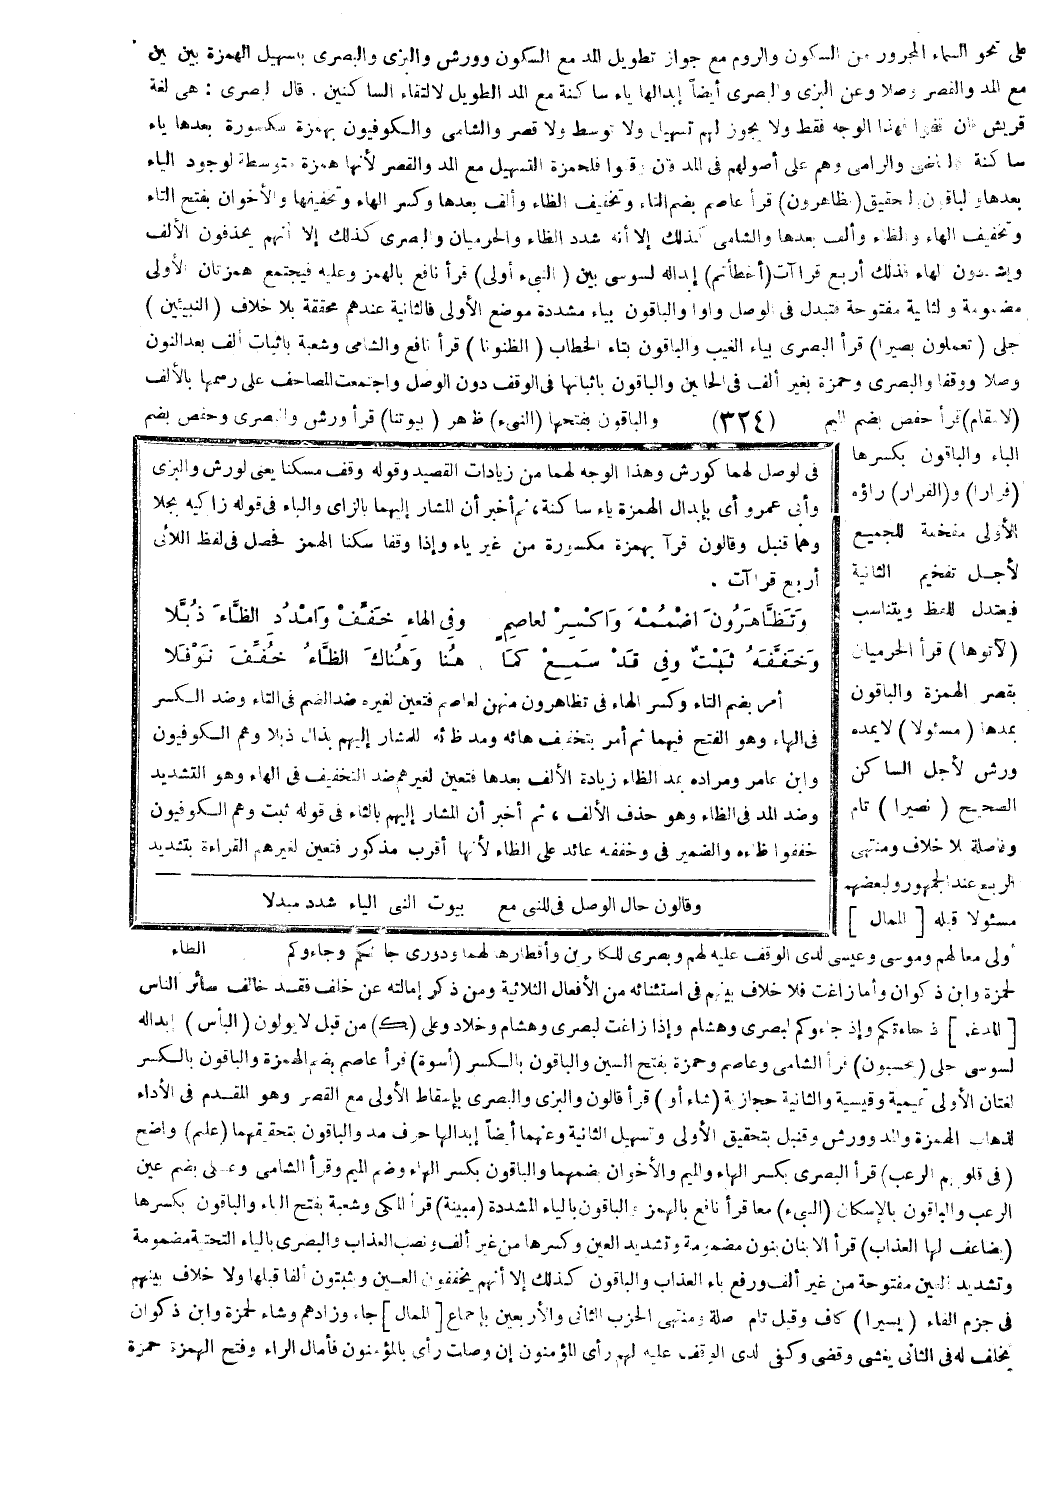 على نحو السماء المجرور من السكون والروم مع جواز تطويل المد مع السكون وورش والبزى والبصرى بتسهيل الهمزة بين بين
مع المد والقصر وصلا وعن البزى والبصرى أيضاً إبدالها ياء ساكنة مع المد الطويل لالتقاء الساكنين . قال البصرى : هى لغة
قريش فان فهذا الوجه فقط ولا يجوز لهم تسهيل ولا توسط ولا قصر والشامى والكوفيون بهمزة مكسورة بعدها ياء
ساكنة والرامى وهم على أصولهم فى المد فان وقفوا فلحمزة التسهيل مع المد والقصر لأنها همزة متوسطة لوجود الياء
بعدها والباقون بالتحقيق (تظاهرون) قرأ عاصم بضم التاء وتخفيف الظاء وألف بعدها وكسر الهاء وتخفيفها والأخوان بفتح التاء
وتخفيف الهاء والظاء وألف بعدها والشامى كذلك إلا أنه شدد الظاء والحرميان والبصرى كذلك إلا أنهم يحذفون الألف
ويشددون الهاء فذلك أربع قراآت (أخطأتم) إبداله لسوسى بين ( النبىء أولى ) قرأ نافع بالهمز وعليه فيجتمع همزتان الأولى
مضمومة والثانية مفتوحة فتبدل فى الوصل واوا والباقون بياء مشددة موضع الأولى فالثانية عندهم محققة بلا خلاف ( النبيئين )
جلى ( تعملون بصيرا ) قرأ البصرى بياء الغيب والباقون بتاء الخطاب ( الظنونا ) قرأ نافع والشامى وشعبة باثبات ألف بعد النون
وصلا ووقفا والبصرى وحمزة بغير ألف فى الحالين والباقون باثباتها فى الوقف دون الوصل واجتمعت المصاحف على رسمها بالألف
(لا مقام) قرأ حفص بضم الميم (٣٢٤) والباقون بفتحها (النبىء) ظاهر ( بيوتنا ) قرأ ورش والبصرى وحفص بضم
الباء والباقون بكسرها
(فرارا) و(الفرار) راؤه
الأولى مفخمة للجميع
لأجل تفخيم الثانية
فيعتدل اللفظ ويتناسب
(لآتوها) قرأ الحرميان
بقصر الهمزة والباقون
بمدها ( مسئولا ) لا يمده
ورش لأجل الساكن
الصحيح ( نصيرا ) تام
وفاصلة بلا خلاف ومنتهى
الربع عند الجمهور ولبعضهم
مسئولا قبله [ الممال ]
فى الوصل لهما كورش وهذا الوجه لهما من زيادات القصيد وقوله وقف مسكنا يعنى لورش والبزى
وأبى عمرو أى بإبدال الهمزة ياء ساكنة ، ثم أخبر أن المشار إليهما بالزاى والباء فى قوله زاكيه بجلا
وهما قنبل وقالون قرآ بهمزة مكسورة من غير ياء وإذا وقفا سكنا الهمز فحصل فى لفظ اللائى
أربع قراآت .
وَتَظَّاهَرُونَ اضْمُمْهُ وَاكْسِرْ لِعَاصِمٍ وفِى الهاءِ خَفِّفْ وَامْدُدِ الظَّاءَ ذُبَّلَا
وَخَفَّفَهُ ثَبْتٌ وفِى قَدْ سَمِعْ كَمَا هُنا وَهُناكَ الظَّاءُ خُفِّفَ نَوْفَلَا
أمر بضم التاء وكسر الهاء فى تظاهرون منهن لعاصم فتعين لغيره ضد الضم فى التاء وضد الكسر
فى الهاء وهو الفتح فيهما ثم أمر بتخفيف هائه ومد ظائه للمشار إليهم بذال ذبلا وهم الكوفيون
وابن عامر ومراده بمد الظاء زيادة الألف بعدها فتعين لغيرهم ضد التخفيف فى الهاء وهو التشديد
وضد المد فى الظاء وهو حذف الألف ، ثم أخبر أن المشار إليهم بالثاء فى قوله ثبت وهم الكوفيون
خففوا ظاءه والضمير فى وخففه عائد على الظاء لأنها أقرب مذكور فتعين لغيرهم القراءة بتشديد
وقالون حال الوصل فى للنبى مع بيوت النبى الياء شدد مبدلا
الظاء
أولى معا لهم وموسى وعيسى لدى الوقف عليه لهم وبصرى للكافرين وأقطارها لهما ودورى جاءتكم وجاءوكم
لحمزة وابن ذكوان وأما زاغت فلا خلاف بينهم فى استثنائه من الأفعال الثلاثية ومن ذكر إمالته عن خلف فقد خالف سائر الناس
[ المدغم ] إذ جاءتكم وإذ جاءوكم لبصرى وهشام وإذا زاغت لبصرى وهشام وخلاد وعلى (ك) من قبل لا يولون (البأس) إبداله
لسوسى جلى (يحسبون) قرأ الشامى وعاصم وحمزة بفتح السين والباقون بالكسر (أسوة) قرأ عاصم بضم الهمزة والباقون بالكسر
لغتان الأولى تميمية وقيسية والثانية حجازية (شاء أو) قرأ قالون والبزى والبصرى بإسقاط الأولى مع القصر وهو المقدم فى الأداء
لذهاب الهمزة والمد وورش وقنبل بتحقيق الأولى وتسهيل الثانية وعنهما أيضاً إبدالها حرف مد والباقون بتحقيقهما (عليهم) واضح
(فى قلوبهم الرعب) قرأ البصرى بكسر الهاء والميم والأخوان بضمهما والباقون بكسر الهاء وضم الميم وقرأ الشامى وعلى بضم عين
الرعب والباقون بالإسكان (النبىء) معا قرأ نافع بالهمز والباقون بالياء المشددة (مبينة) قرأ المكى وشعبة بفتح الياء والباقون بكسرها
(يضاعف لها العذاب) قرأ الابنان بنون مضمومة وتشديد العين وكسرها من غير ألف ونصب العذاب والبصرى بالياء التحتية مضمومة
وتشديد العين مفتوحة من غير ألف ورفع باء العذاب والباقون كذلك إلا أنهم يخففون العين ويثبتون ألفا قبلها ولا خلاف بينهم
فى جزم الفاء ( يسيرا ) كاف وقيل تام فاصلة ومنتهى الحزب الثانى والأربعين بإجماع [ الممال ] جاء وزادهم وشاء لحمزة وابن ذكوان
بخلف له فى الثانى يغشى وقضى وكفى لدى الوقف عليه لهم رأى المؤمنون إن وصلت رأى بالمؤمنون فأمال الراء وفتح الهمزة حمزة